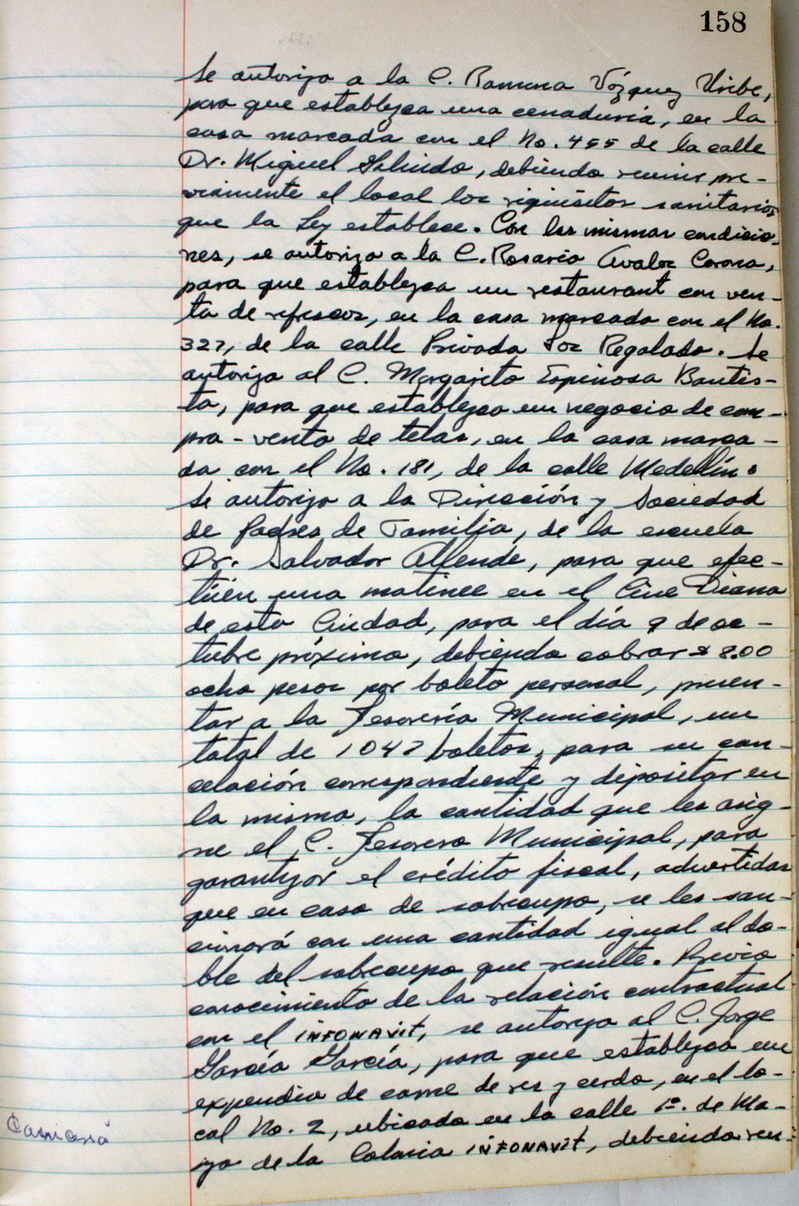 158
Se autoriza a la C. Ramona Vázquez Uribe,
para que establezca una cenaduría, en la
casa marcada con el No. 455 de la calle
Dr. Miguel Galindo, debiendo reunir pre-
viamente el local los riquisitos sanitarios
que la Ley establece. Con las mismas condicio-
nes, se autoriza a la C. Rosario Avalos Corona,
para que establezca un restaurant con ven-
ta de refrescos, en la casa marcada con el No.
327, de la calle Privada Regalado. Se
autoriza al C. Margarito Espinosa Bautis-
ta, para que establezca un negocio de com-
pra-venta de telas, en la casa marca-
da con el No. 181, de la calle Medellín.
Se autoriza a la Dirección y Sociedad
de Padres de Familia, de la escuela
Dr. Salvador Allende, para que efec-
túen una matinee en el Cine Diana
de esta Ciudad, para el día 9 de oc-
tubre próximo, debiendo cobrar $ 8.00
ocho pesos por boleto personal, presen-
tar a la Tesorería Municipal, un
total de 1047 boletos, para su can-
celación correspondiente y depositar en
la misma, la cantidad que les asig-
ne el C. Tesorero Municipal, para
garantizar el crédito fiscal, advertidos
que en caso de sobrecupo, se les san-
cionará con una cantidad igual al do-
ble del sobrecupo que resulte. Previo
conocimiento de la relación contractual
con el INFONAVIT, se autoriza al C. Jorge
García García, para que establezca un
expendio de carne de res y cerdo, en el lo-
cal No. 2, ubicado en la calle 1º. de Ma-
yo de la Colonia INFONAVIT, debiendo reu-